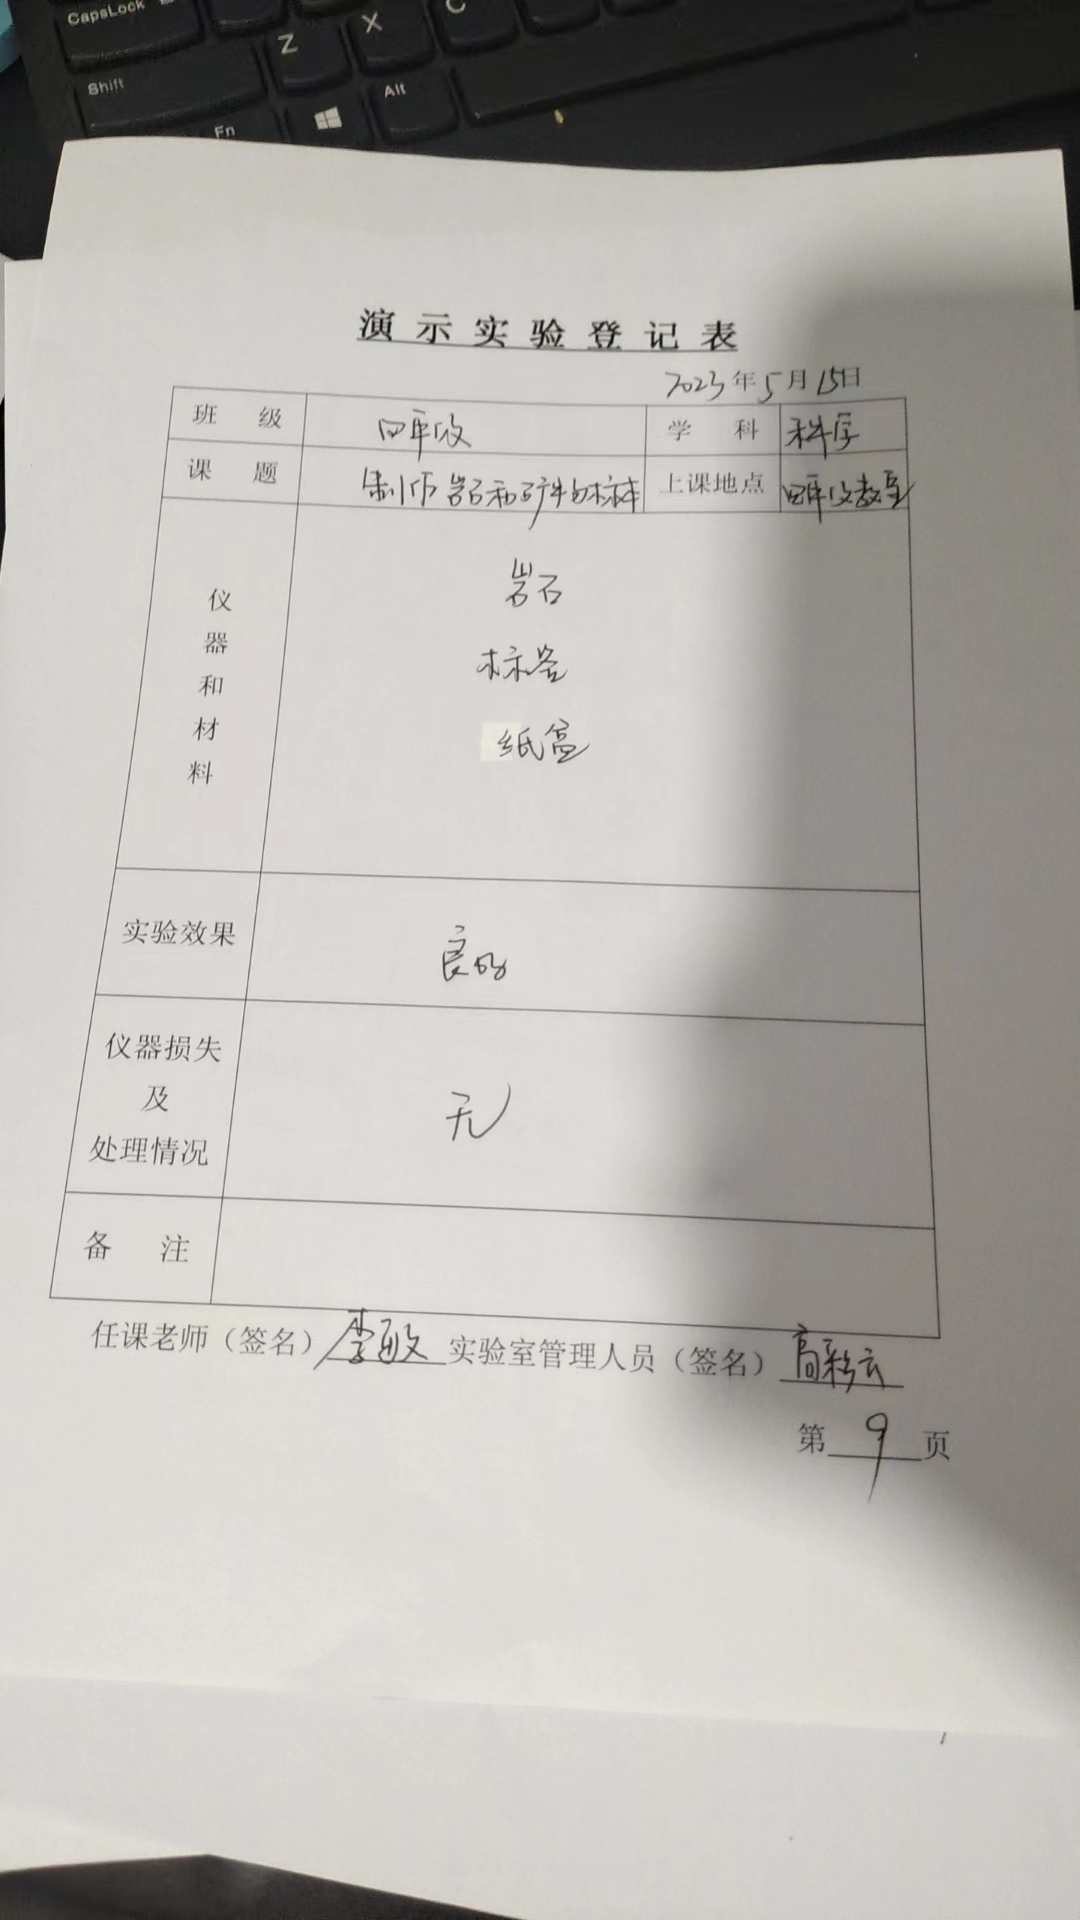 CapsLock
Z
X
C
Shift
Alt
Fn
演示实验登记表
2023年5月15日
班级 四年级 学科 科学
课题 制作岩石和矿物标本 上课地点 四年级教室
仪器和材料
岩石
标签
纸盒
实验效果 良好
仪器损失
及
处理情况
无
备注
任课老师（签名）李敏 实验室管理人员（签名）高彩云
第9页